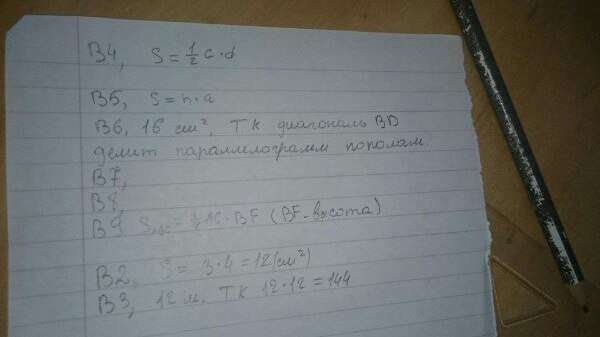 В4, S = 1/2 c · d
В5, S = h · a
В6, 16 см², ТК диагональ BD
делит параллелограмм пополам
В7,
В8,
В9 = 1/2 AC · BF (BF - высота)
В2, S = 3 · 4 = 12 (см²)
В3, 12 м, ТК 12 · 12 = 144